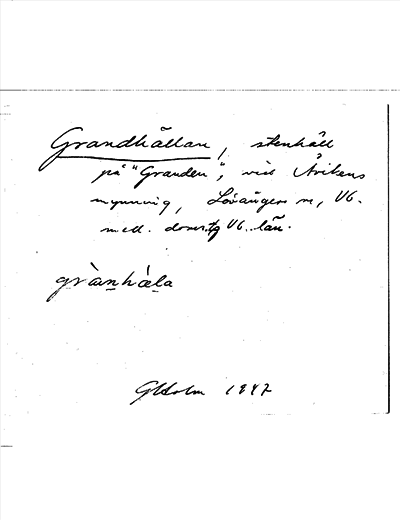 Grandhällan, stenhäll
på "Granden", vid Åvikens
mynning, Lövångers sn, Vb.
med. doms. Vb. län.
gràn̲hàl̲a
GHolm 1947